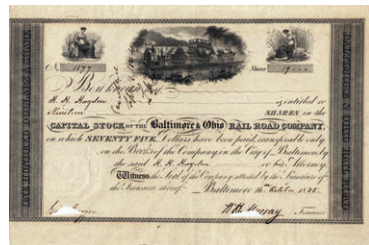 No 1897 Shares 19
Be it known
H. H. Hayden is entitled to
Nineteen SHARES, in the
CAPITAL STOCK OF THE Baltimore & Ohio RAIL ROAD COMPANY,
on which SEVENTY FIVE Dollars have been paid, transferable only
on the Books of the Company, in the City of Baltimore, by
the said H. H. Hayden or his Attorney
Witness the Seal of the Company, attested by the Treasurer
the Treasurer thereof Baltimore 16 October 1835
Treasurer
ONE HUNDRED DOLLARS A SHARE
BALTIMORE & OHIO RAIL ROAD